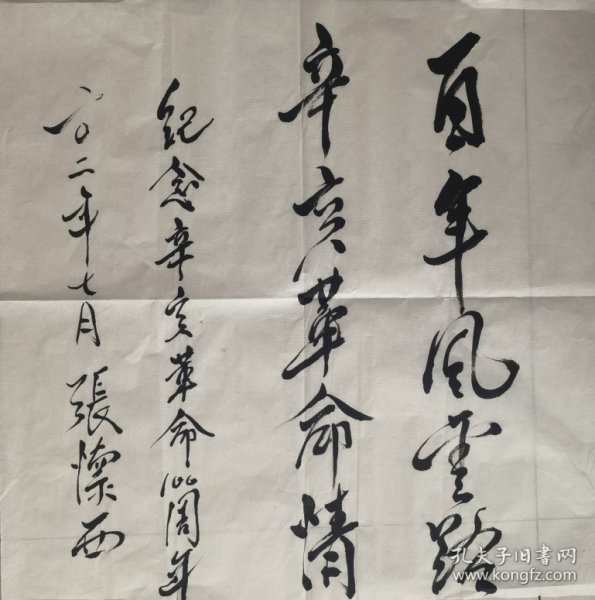 百年风雲路
辛亥革命情
紀念辛亥革命100周年
二〇一一年七月 張懷西
孔夫子旧书网
www.kongfz.com